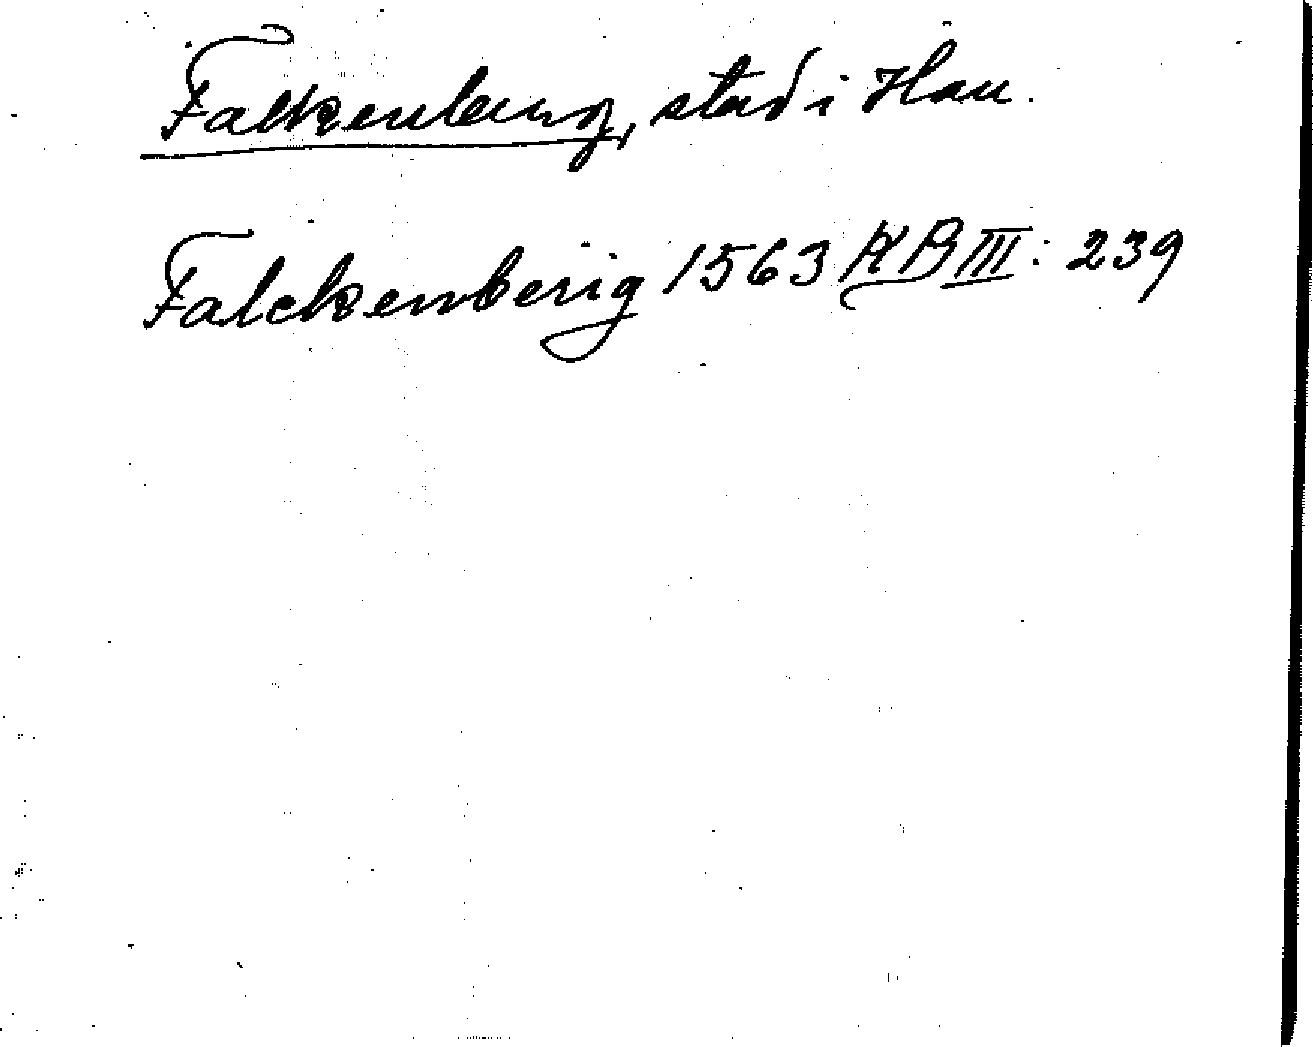 Falkenberg, stad i Hall.
Falckenberig 1563 KB III: 239